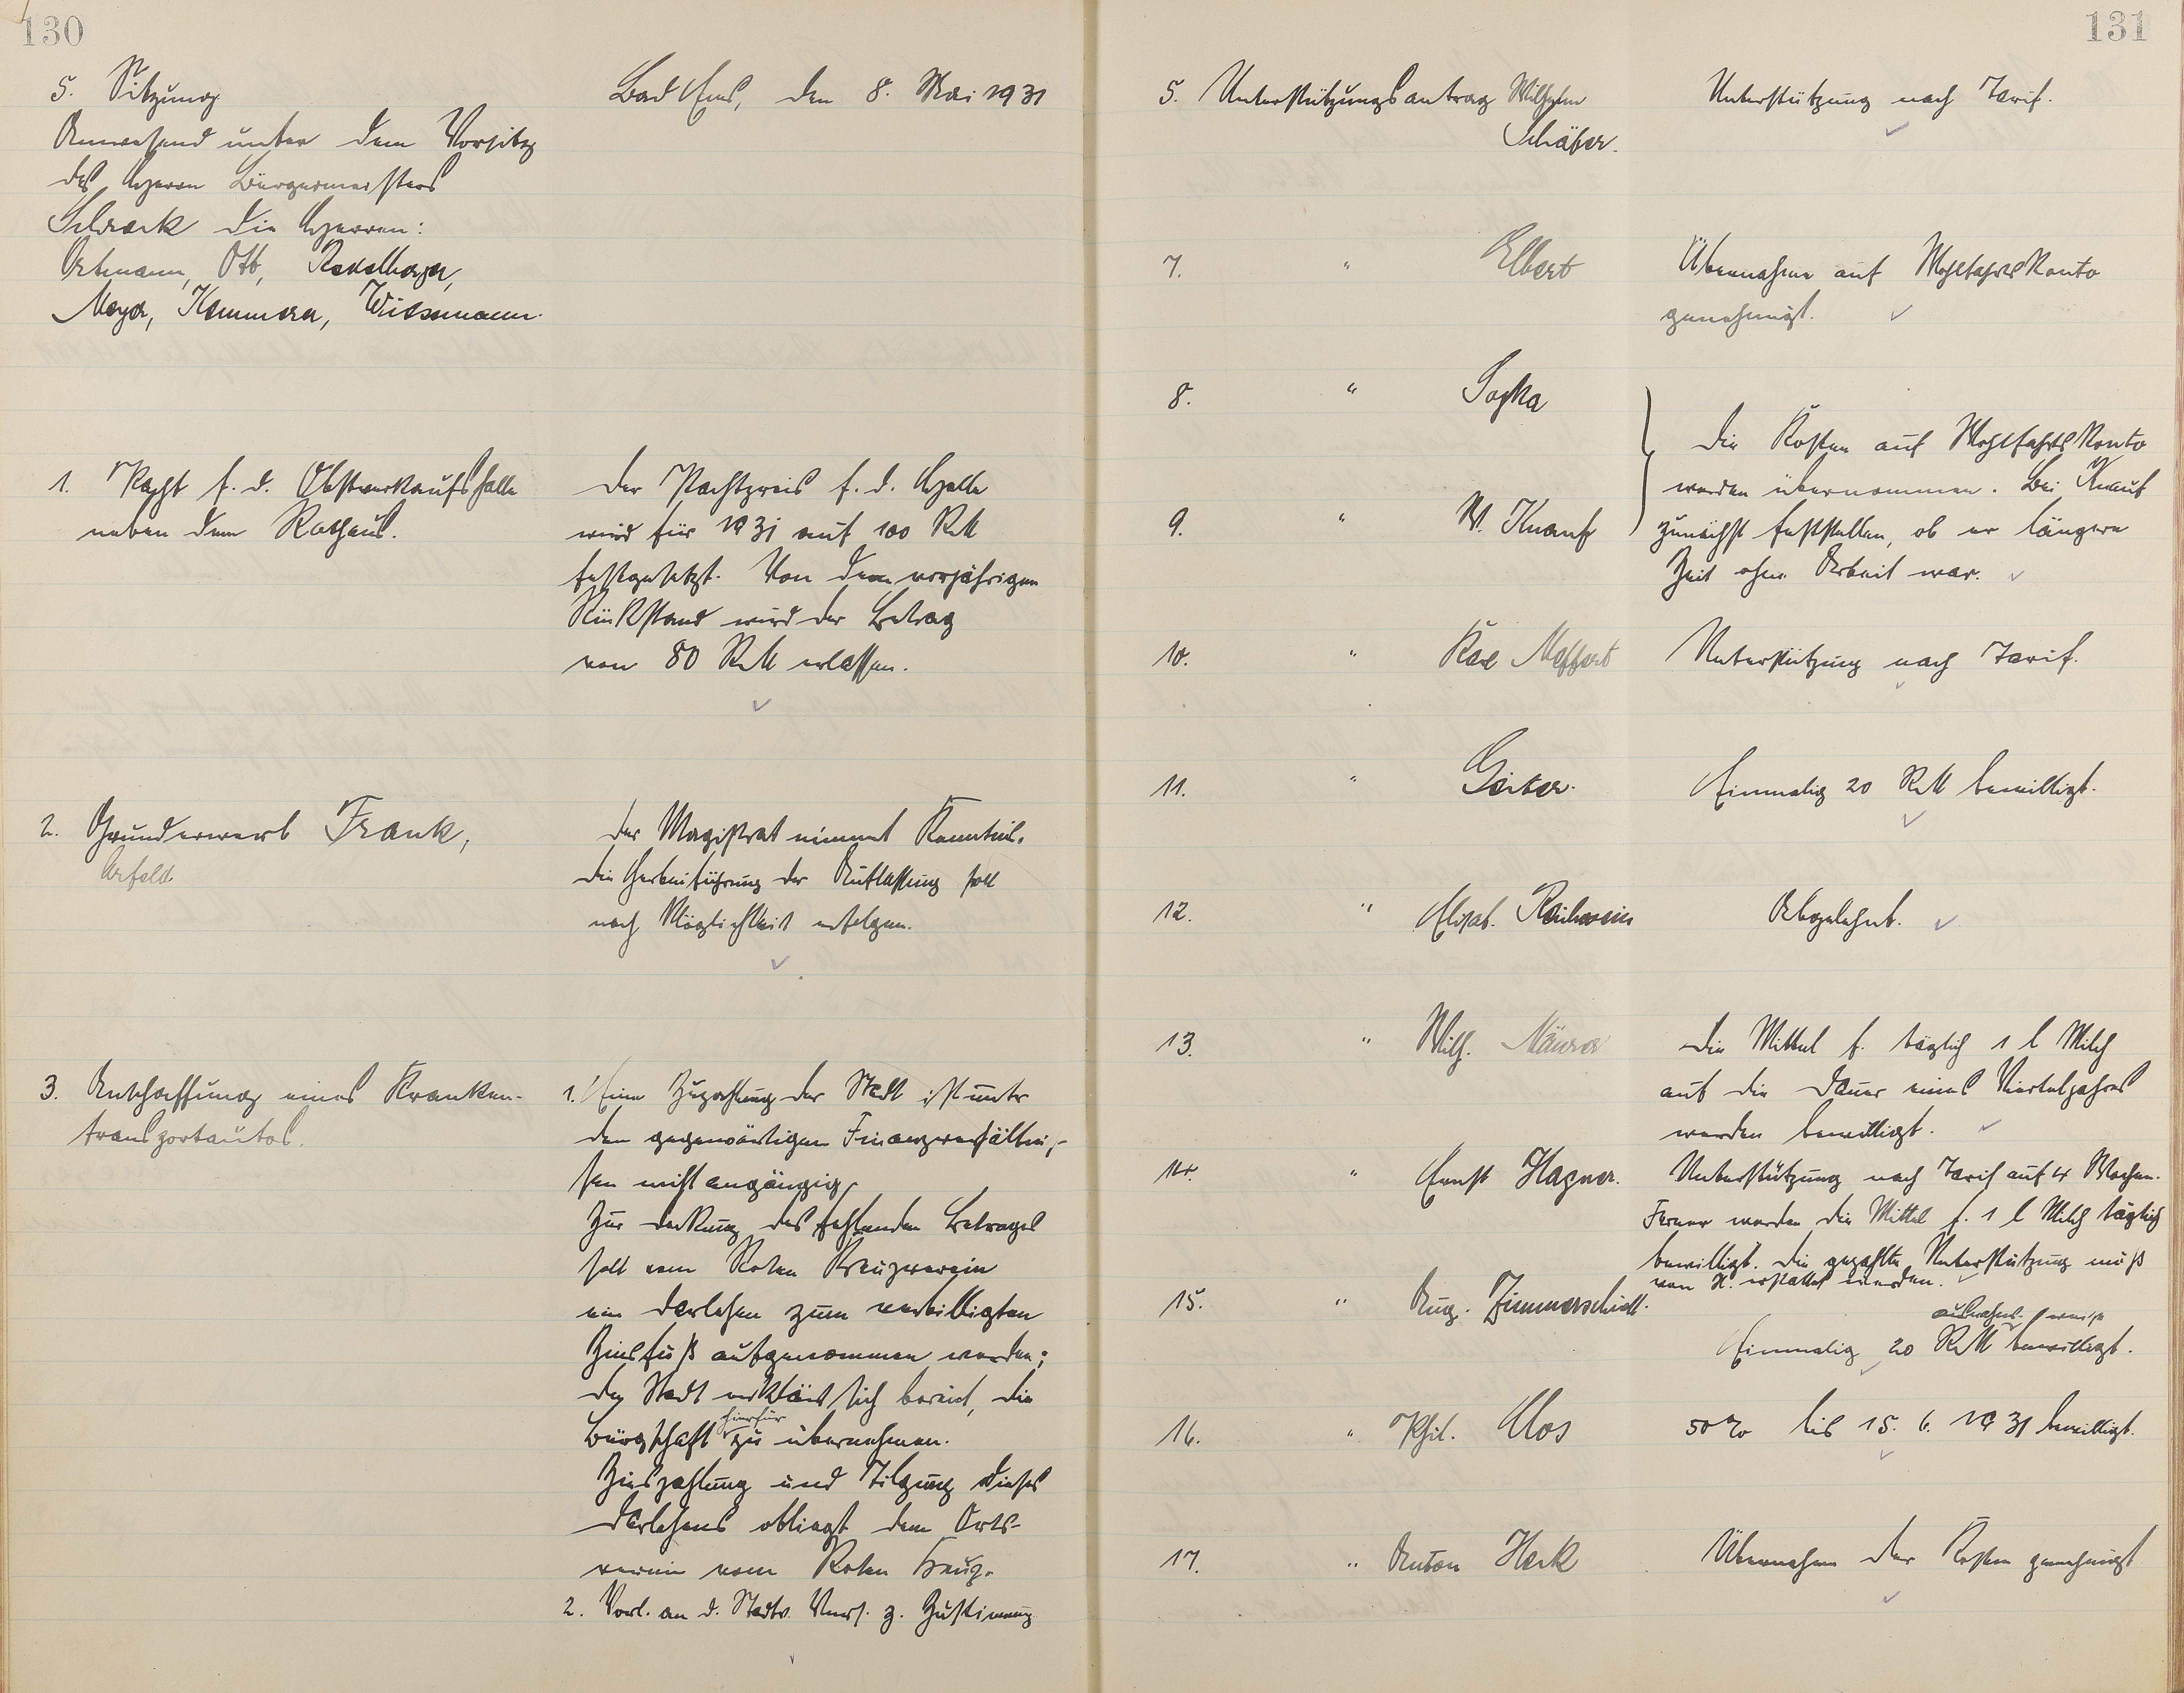 130
5. Sitzung
Bad Ems, den 8. Mai 1931
Anwesend unter dem Vorsitz
des Herrn Bürgermeisters
Schrack die Herren:
Ortmann, Ott,
Meyer, Kemmerer, Wiesemann.
1. Pacht f. d. Obstverkaufshalle
neben dem Rathaus.
Der Pachtpreis f. d. Halle
wird für 1931 auf 100 RM
festgesetzt. Von dem vorjährigen
Rückstand wird der Betrag
von 80 RM erlassen.
2. Grunderwerb Frank,
Der Magistrat nimmt Kenntnis.
Die Herbeiführung der Auflassung soll
nach Möglichkeit erfolgen.
3. Anschaffung eines Kranken-
transportautos.
1. Eine Zuzahlung der Stadt ist unter
den gegenwärtigen Finanzverhältnis-
sen nicht angängig.
Zur Deckung des fehlenden Betrages
soll vom Roten Kreuzverein
ein Darlehen zum verbilligten
Zinsfuß aufgenommen werden;
die Stadt erklärt sich bereit, die
Bürgschaft hierfür zu übernehmen.
Zinszahlung und Tilgung dieses
Darlehens obliegt dem Orts-
verein vom Roten Kreuz.
2. Vorl. an d. Stadtv. Vers. z. Zustimmung
131
5. Unterstützungsantrag Wilhelm
Schäfer.
Unterstützung nach Tarif.
7. " Elbert
Übernahme auf Wohlfahrtskonto
genehmigt.
8. " Sopka
Die Kosten auf Wohlfahrtskonto
werden übernommen. Bei Knauf
9. " W. Knauf
zunächst feststellen, ob er längere
Zeit ohne Arbeit war.
10. " Karl Meffert
Unterstützung nach Tarif.
11. " Geiter.
Einmalig 20 RM bewilligt.
12. " Elisab.
Abgelehnt.
13. " Wilh. Mäurer
Die Mittel f. täglich 1 l Milch
auf die Dauer eines Vierteljahres
werden bewilligt.
14. " Ernst Hagner.
Unterstützung nach Tarif auf 4 Wochen.
Ferner werden die Mittel f. 1 l Milch täglich
bewilligt. Die gezahlte Unterstützung muß
von H. erstattet werden.
15. " Aug. Zimmerschied.
ausnahmsweise
Einmalig 20 RM bewilligt.
16. " Phil. Clos
50% bis 15. 6. 1931 bewilligt.
17. " Anton Herk
Übernahme der Kosten genehmigt